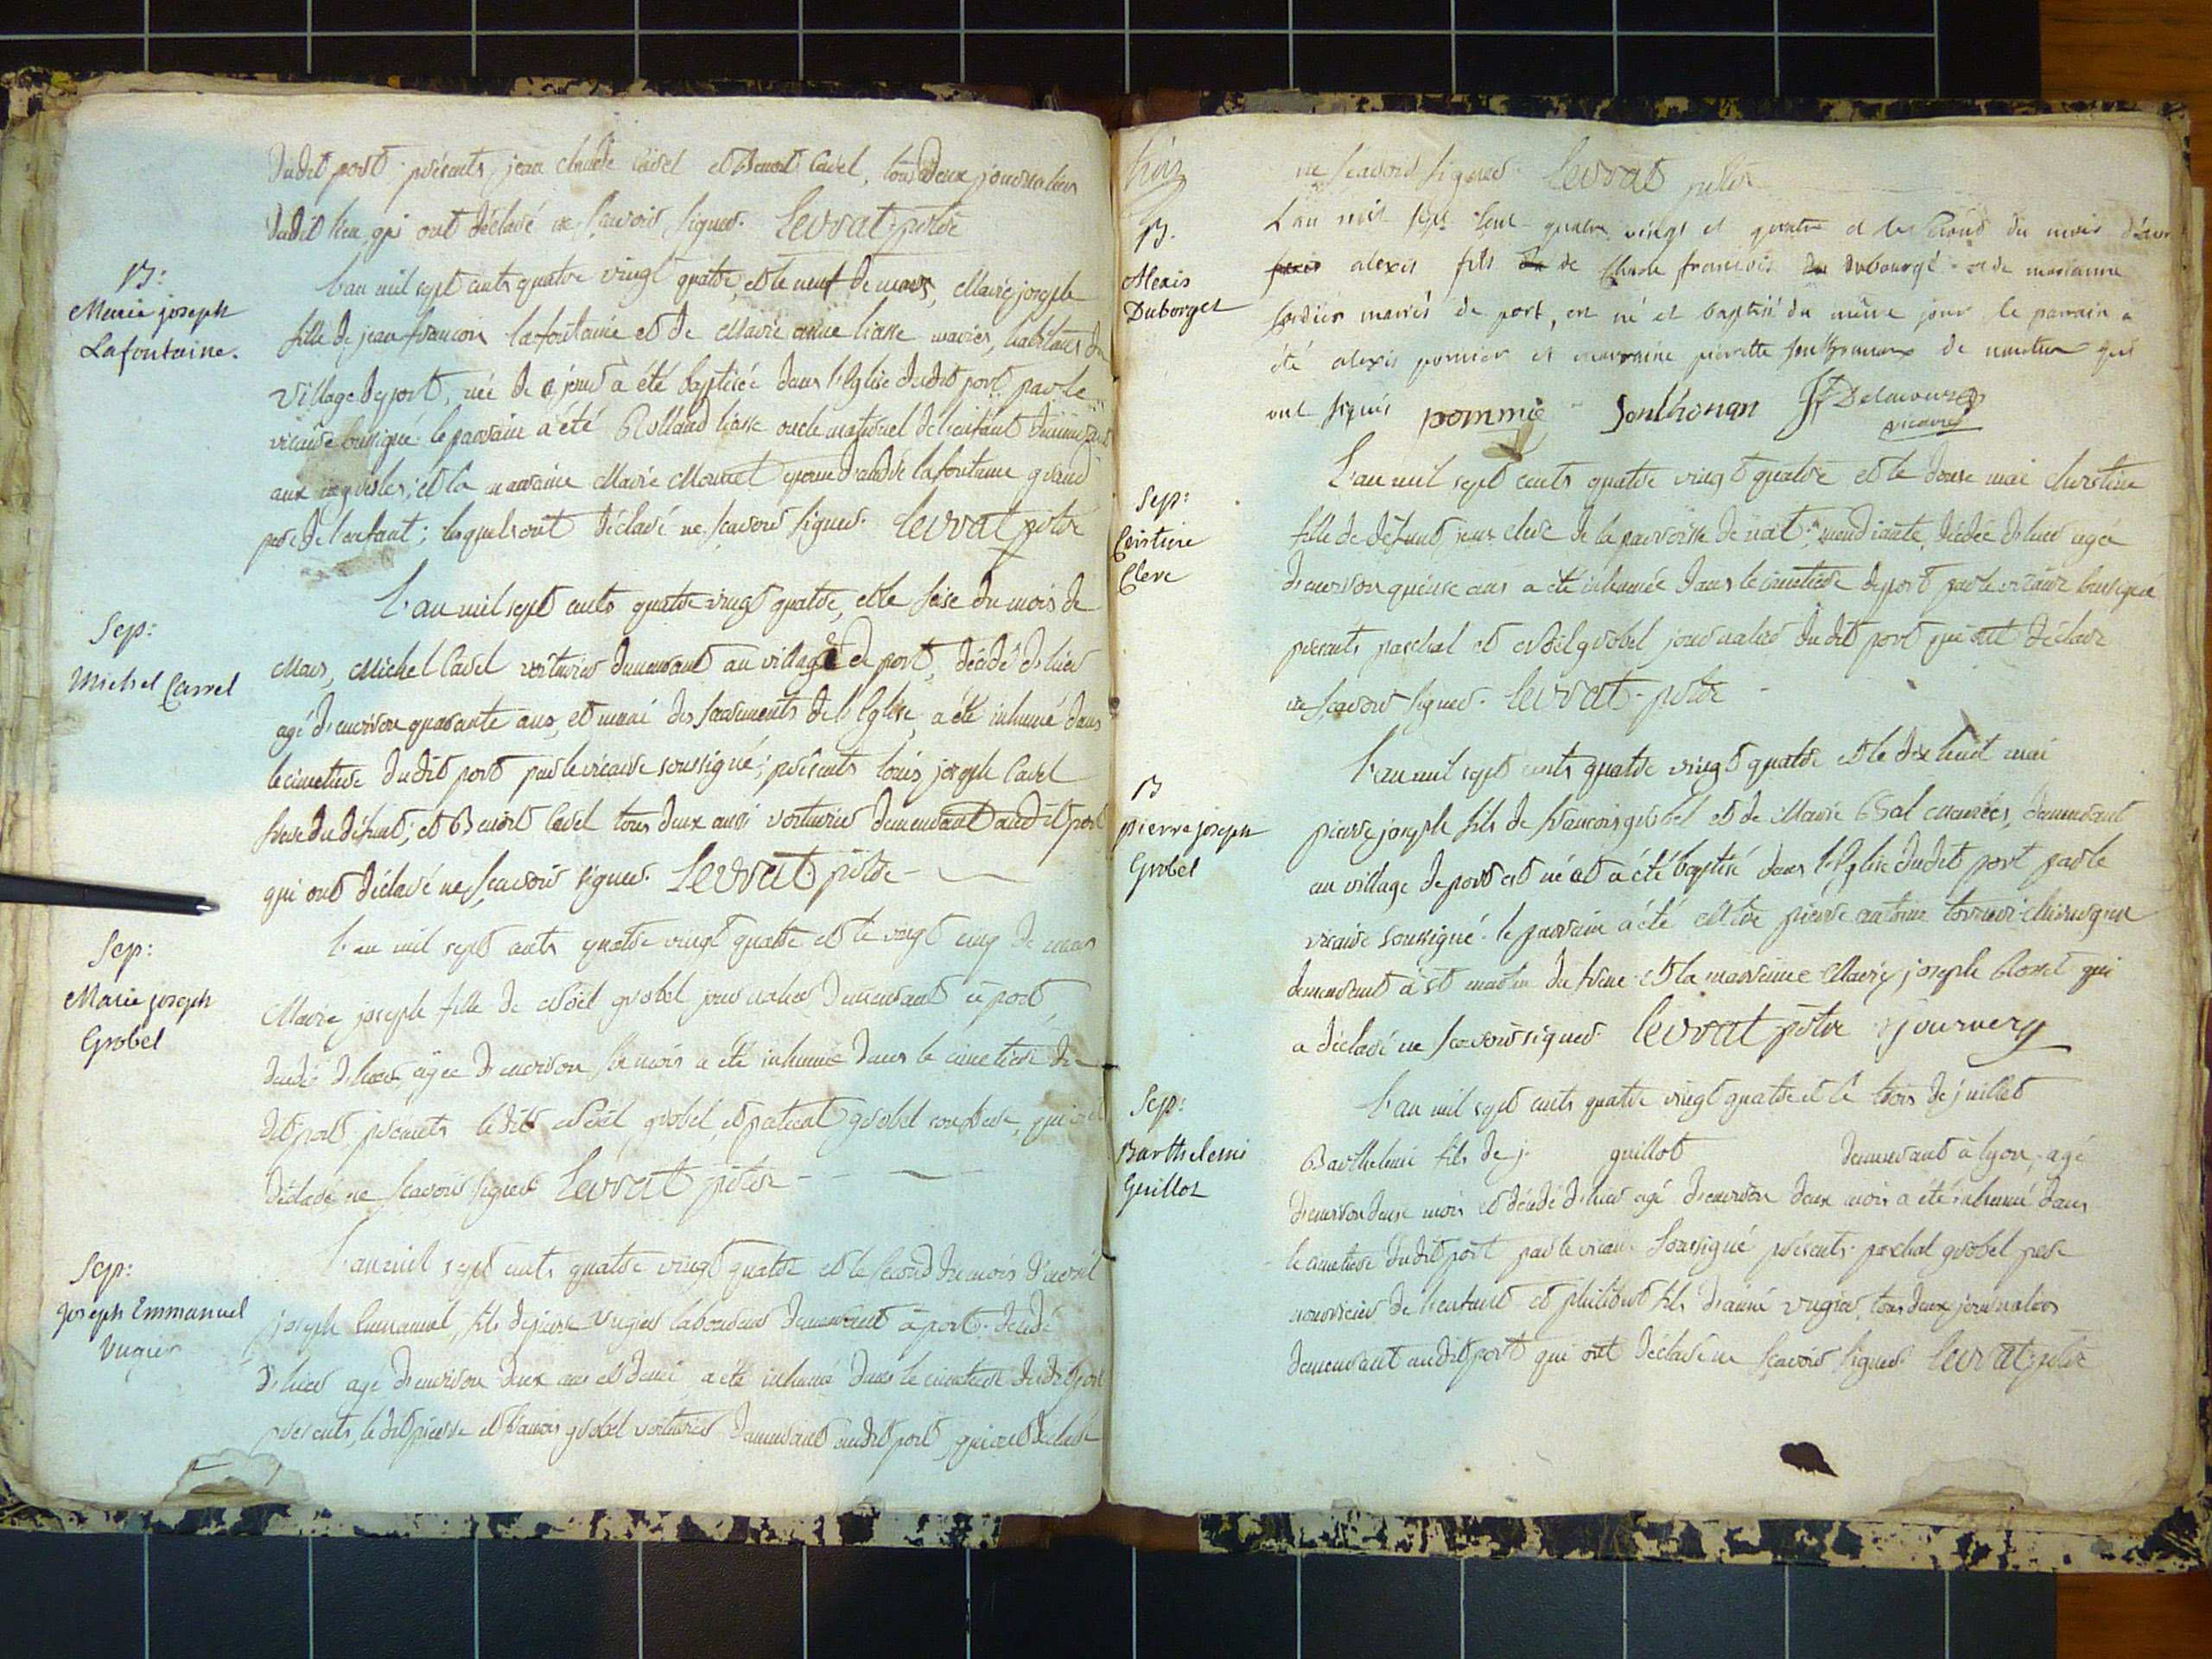 dudit port présents jean claude Cavel et Benoit Cavel, tous deux journaliers
dudit lieu, qui ont déclaré ne scavoir signer. Levrat prtre
B:
Marie joseph
Lafontaine.
L'an mil sept cents quatre vingt quatre, et le neuf de mars, Marie joseph
fille de jean françois lafontaine et de Marie anne liasse mariés, habitans du
village de port, née de ce jour a été baptisée dans l'Eglise dudit port par le
vicaire soussigné. le parrain a été Rolland liasse oncle maternel de l'enfant
aux; et la marraine Marie épouse d'andré lafontaine grand
pere de l'enfant; lesquels ont déclaré ne scavoir signer. Levrat prtre
Sep:
Michel Carrel
L'an mil sept cents quatre vingt quatre, et le seise du mois de
Mars, Michel Cavel voiturier demeurant au village de port, décédé d'hier
agé d'environ quarante ans, et muni des sacrements de l'Eglise, a été inhumé dans
le cimetiere dudit port par le vicaire soussigné; présents louis joseph Cavel
frere du défunt; et Benoit Cavel tous deux aussi voituriers demeurant audit port
qui ont déclaré ne scavoir signer. Levrat prtre
Sep:
Marie joseph
Grobel
L'an mil sept cents quatre vingt quatre et le vingt cinq de mars
Marie joseph fille de Noël grobel journalier demeurant à port,
décédée d'hier, agée d'environ six mois a été inhumée dans le cimetiere du
dit port, présents ledit Noël grobel, et grobel son frere, qui ont
déclaré ne scavoir signer Levrat prtre
Sep:
Joseph Emmanuel
Vugier
L'an mil sept cents quatre vingt quatre et le second du mois d'avril
joseph Emmanuel, fils de pierre Vugier laboureur demeurant à port. décédé
d'hier agé d'environ deux ans et demi, a été inhumé dans le cimetiere dudit port
présents, ledit pierre et françois grobel voiturier demeurant audit port, qui ont déclaré
ne scavoir signer. Levrat prtre
B.
Alexis
Duborget
L'an mil sept cent quatre vingt et quatre et le second du mois d'avr
alexis fils de Claude francois Dubourgé et de marianne
Cordier mariés de port, est né et baptisé du même jour le parrain a
été alexis pomier et marraine pierrette Jonthonnan de nantua qui
ont signés pommié Jonthonan Delacour
vicaire
Sep:
Cristine
Clerc
L'an mil sept cents quatre vingt quatre et le douse mai christine
fille de défunt jean clerc de la parroisse de mendiante, décédée d'hier agée
d'environ quinse ans a été inhumée dans le cimetiere de port par le vicaire soussigné
présents paschal et Noël grobel journalier dudit port qui ont déclaré
ne scavoir signer. Levrat prtre
B
pierre joseph
Grobel
L'an mil sept cents quatre vingt quatre et le dix huit mai
pierre joseph fils de françois grobel et de Marie Bal mariés, demeurant
au village de port est né et a été baptisé dans l'Eglise dudit port par le
vicaire soussigné. le parrain a été pierre antoine chirurgien
demeurant à st martin du frene et la marraine Marie joseph qui
a déclaré ne scavoir signer. Levrat prtre
Sep:
Barthelemi
Guillot
L'an mil sept cents quatre vingt quatre et le trois de juillet
Barthelemi fils de j. guillot demeurant à lyon, agé
d'environ deux mois et décédé d'hier agé d'environ deux mois a été inhumé dans
le cimetiere dudit port par le vicaire soussigné présents paschal grobel pere
nourricier de l'enfant et philibert fils d'aimé vugier, tous deux journaliers
demeurant audit port qui ont déclaré ne scavoir signer. Levrat prtre